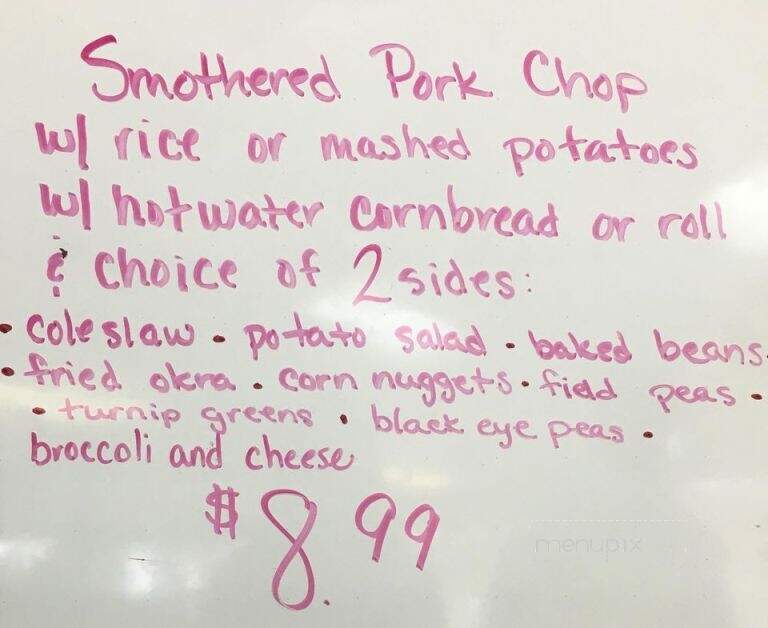 Smothered Pork Chop
w/ rice or mashed potatoes
w/ hotwater cornbread or roll
& choice of 2 sides:
• coleslaw • potato salad • baked beans
• fried okra • corn nuggets • field peas •
• turnip greens • black eye peas •
broccoli and cheese
$8.99
menupix